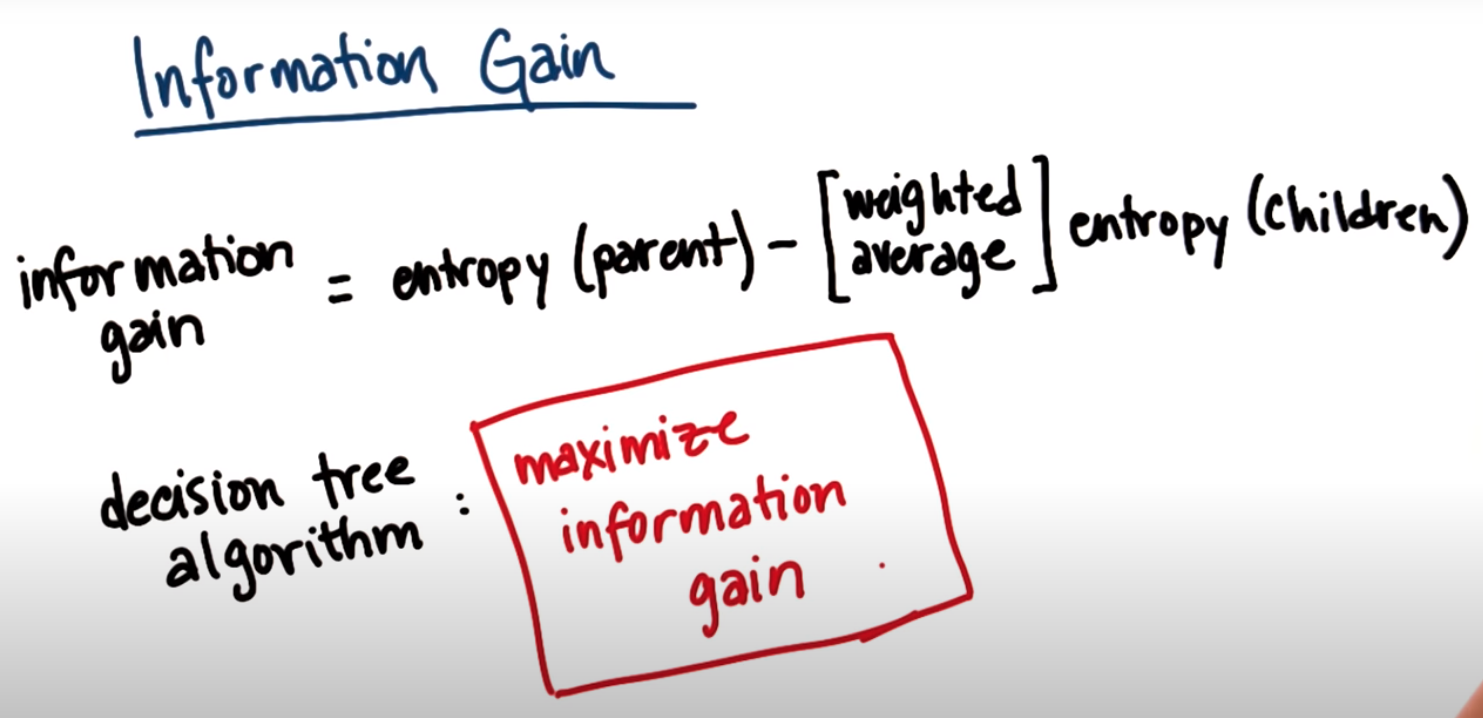 Information Gain
information gain = entropy (parent) - [weighted average] entropy (children)
decision tree algorithm : maximize
information
gain